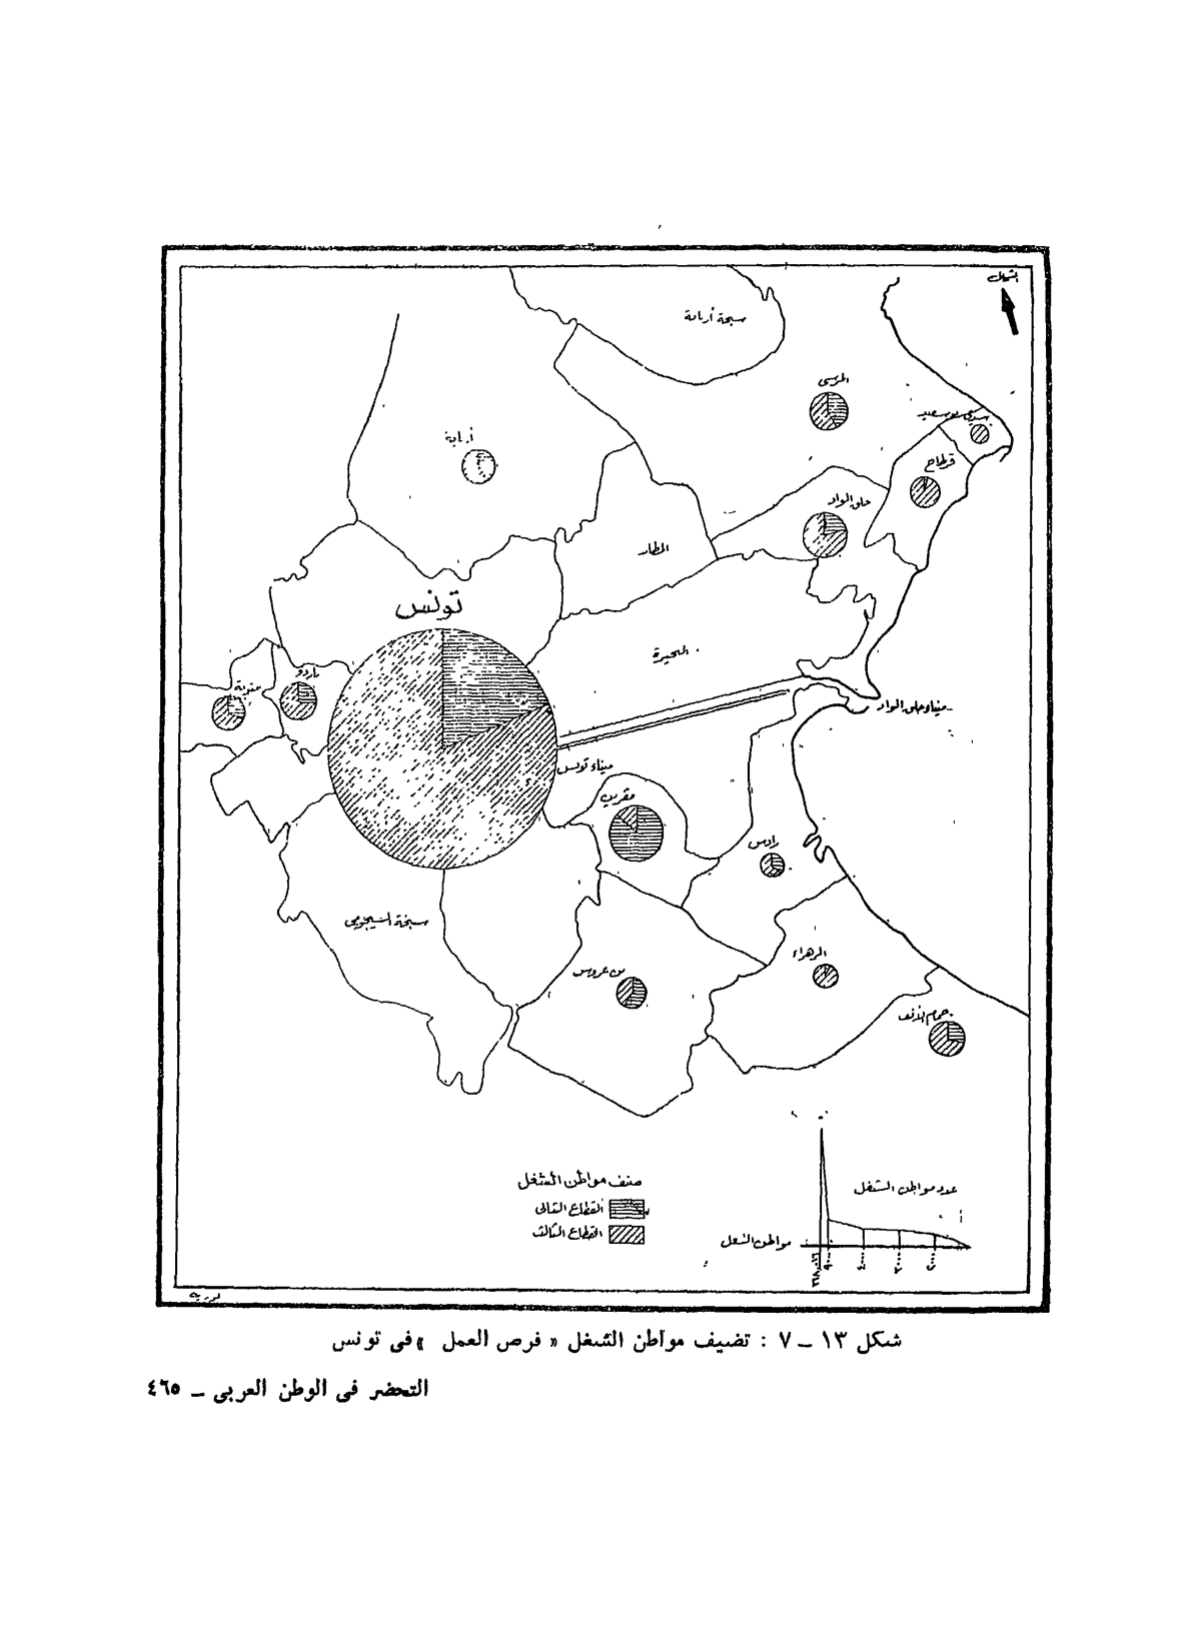 الشمال
سبخة أريانة
المرسى
سيدي بوسعيد
أريانة
قرطاج
حلق الواد
المطار
تونس
البحيرة
باردو
منوبة
ميناء حلق الواد
ميناء تونس
مقرين
رادس
سبخة السيجومي
الزهراء
بن عروس
حمام الأنف
صنف مواطن الشغل
القطاع الثاني
القطاع الثالث
عدد مواطن الشغل
مواطن الشغل
شكل ١٣ ــ ٧ : تضيف مواطن الشغل « فرص العمل » فى تونس
التحضر فى الوطن العربى ــ ٤٦٥